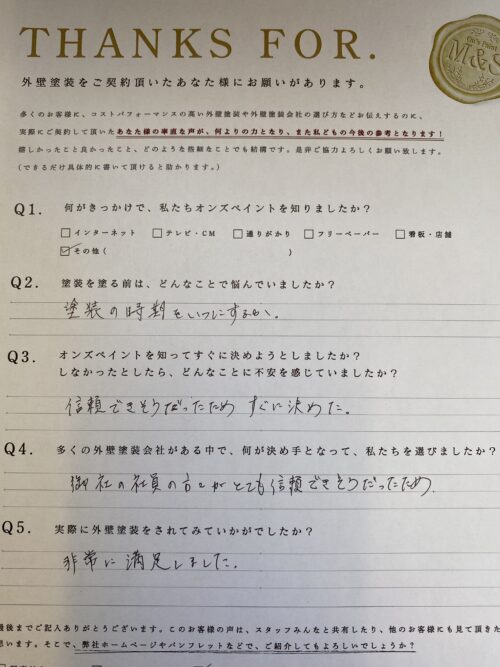 THANKS FOR.
On's Paint
M&S
外壁塗装をご契約頂いたあなた様にお願いがあります。
多くのお客様に、コストパフォーマンスの高い外壁塗装や外壁塗装会社の選び方などお伝えするのに、
実際にご契約して頂いたあなた様の率直な声が、何よりの力となり、また私どもの今後の参考となります！
嬉しかったこと良かったこと、どのような些細なことでも結構です。是非ご協力よろしくお願い致します。
（できるだけ具体的に書いて頂けると助かります。）
Q1. 何がきっかけで、私たちオンズペイントを知りましたか？
□インターネット □テレビ・CM □通りがかり □フリーペーパー □看板・店舗
☑その他（ ）
Q2. 塗装を塗る前は、どんなことで悩んでいましたか？
塗装の時期をいつにするか。
Q3. オンズペイントを知ってすぐに決めようとしましたか？
しなかったとしたら、どんなことに不安を感じていましたか？
信頼できそうだったため すぐに決めた。
Q4. 多くの外壁塗装会社がある中で、何が決め手となって、私たちを選びましたか？
御社の社員の方々がとても信頼できそうだったため。
Q5. 実際に外壁塗装をされてみていかがでしたか？
非常に満足しました。
最後までご記入ありがとうございます。このお客様の声は、スタッフみんなと共有したり、他のお客様にも見て頂きた
思います。そこで、弊社ホームページやパンフレットなどで、ご紹介してもよろしいでしょうか？